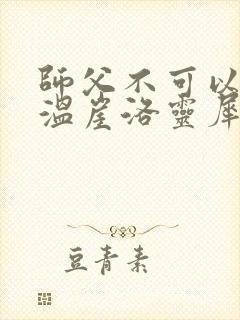 師父不可以
溫崖洛靈犀
豆青素